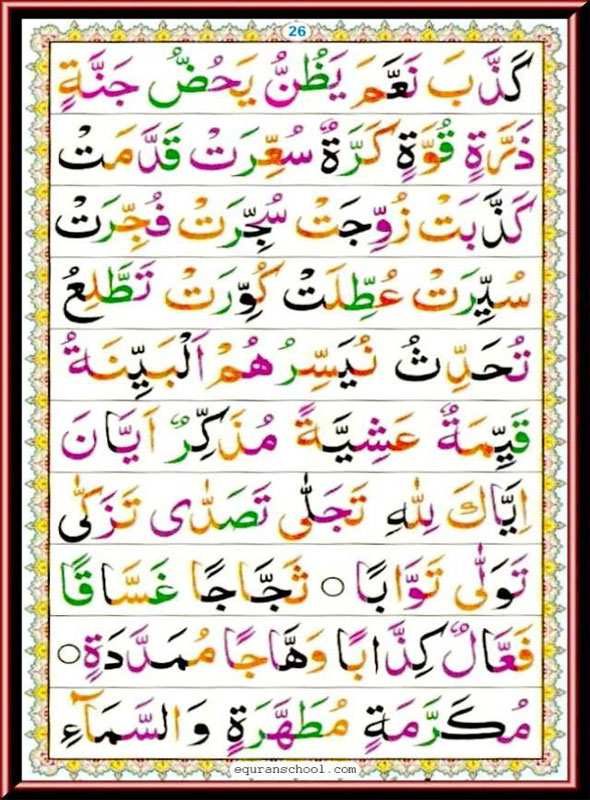 26
كَذَّبَ نَعَّمَ يَظُنُّ يَحُضُّ جَنَّةٍ
ذَرَّةٍ قُوَّةٍ كَرَّةٌ سُعِّرَتْ قَدَّمَتْ
كَذَّبَتْ زُوِّجَتْ سُجِّرَتْ فُجِّرَتْ
سُيِّرَتْ عُطِّلَتْ كُوِّرَتْ تَطَّلِعُ
تُحَدِّثُ نُيَسِّرُ هُمْ اَلْبَيِّنَةُ
قَيِّمَةٌ عَشِيَّةً مُذَكِّرٌ اَيَّانَ
اِيَّاكَ لِلّٰهِ تَجَلّٰى تَصَدّٰى تَزَكّٰى
تَوَلّٰى تَوَّابًا ○ ثَجَّاجًا غَسَّاقًا
فَعَّالٌ كِذَّابًا وَهَّاجًا مُمَدَّدَةٍ ○
مُكَرَّمَةٍ مُطَهَّرَةٍ وَالسَّمَآءِ
equranschool.com